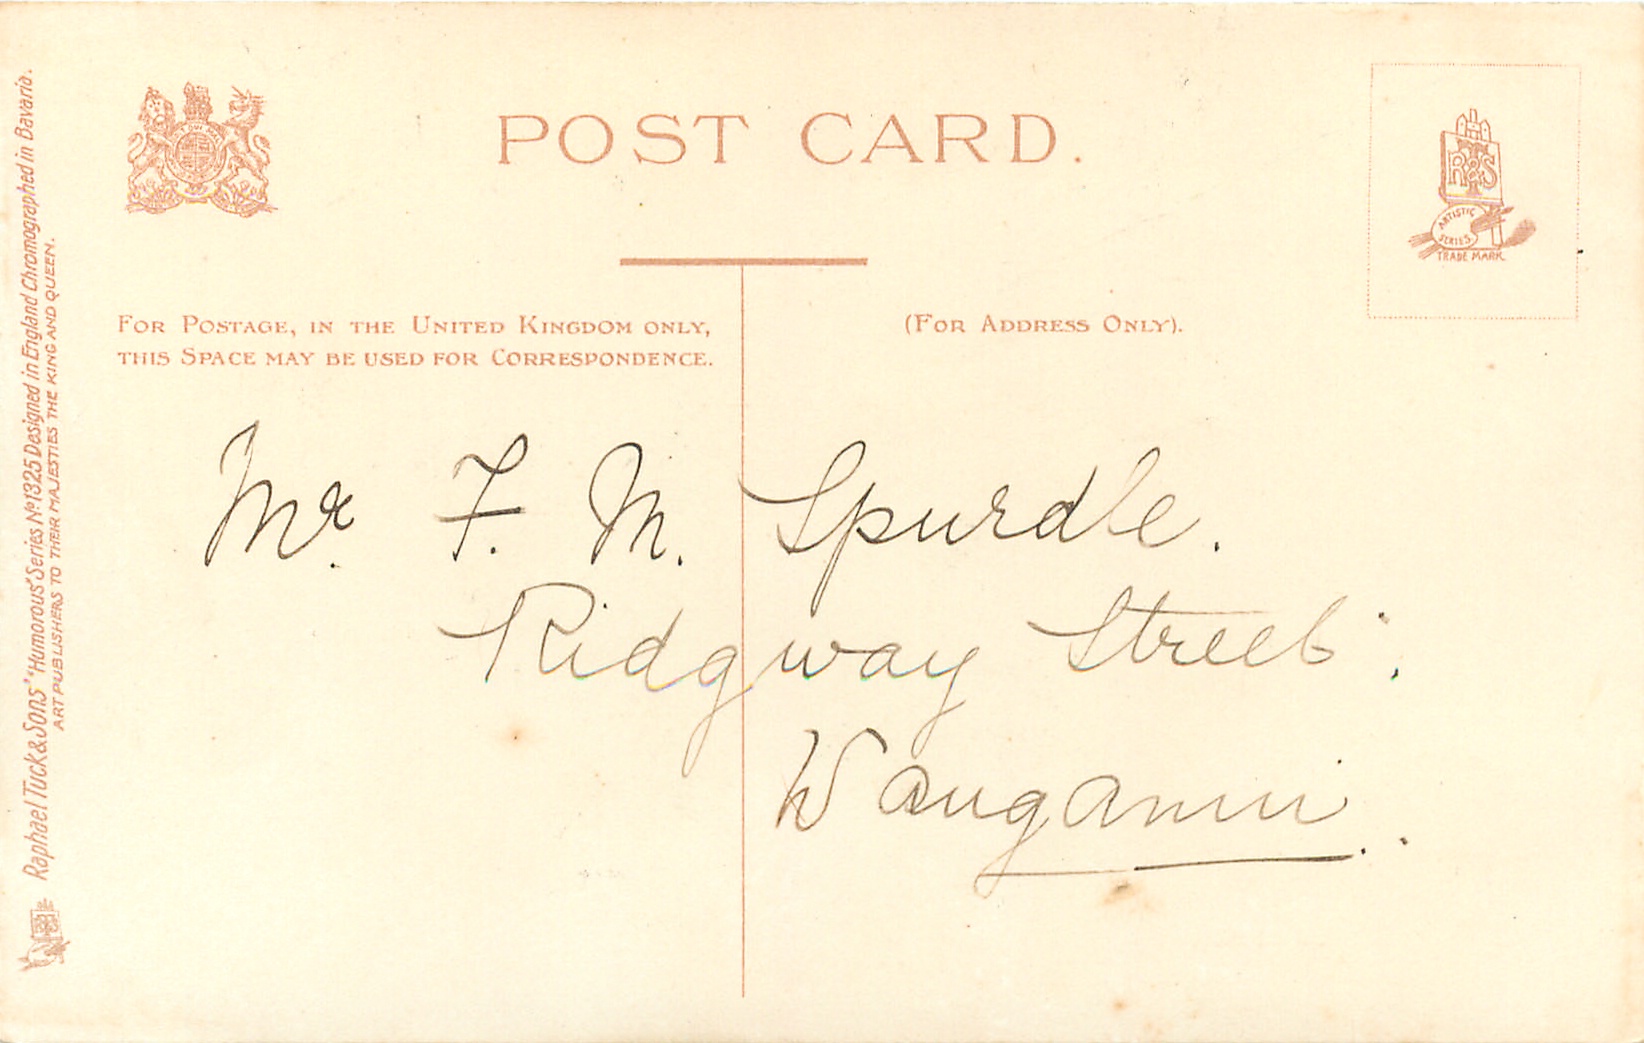 POST CARD.
FOR POSTAGE, IN THE UNITED KINGDOM ONLY,
THIS SPACE MAY BE USED FOR CORRESPONDENCE.
(FOR ADDRESS ONLY).
R&S
ARTISTIC
SERIES
TRADE MARK
Mr. F. M. Spurdle.
Ridgway Street,
Wanganui.
Raphael Tuck & Sons' "Humorous" Series No 1325 Designed in England Chromographed in Bavaria.
ART PUBLISHERS TO THEIR MAJESTIES THE KING AND QUEEN.